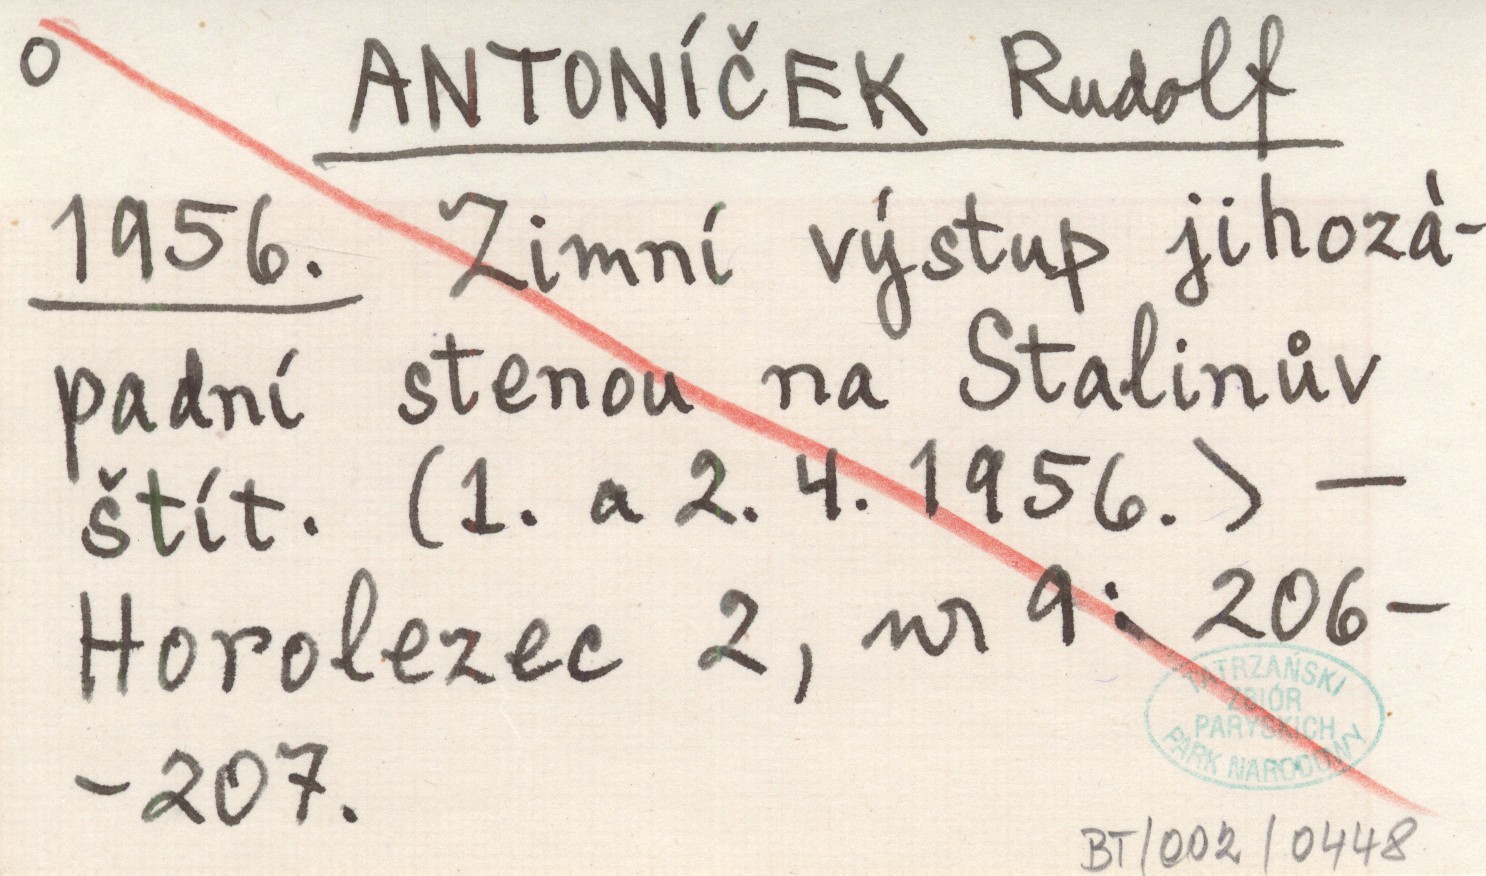 O
ANTONÍČEK Rudolf
1956. Zimní výstup jihozá-
padní stenou na Stalinův
štít. (1. a 2. 4. 1956.) —
Horolezec 2, nr 9: 206-
-207.
TATRZAŃSKI
ZBIÓR
PARYSKICH
PARK NARODOWY
BT/002/0448